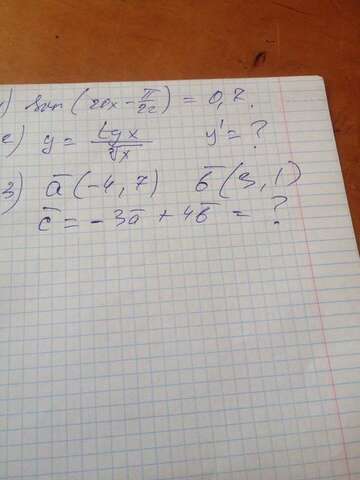 1) sin (20x - π/22) = 0,7.
2) y = tgx/∛x y' = ?
3) a̅ (-4, 7) б̅ (3, 1)
c̅ = - 3a̅ + 4б̅ = ?